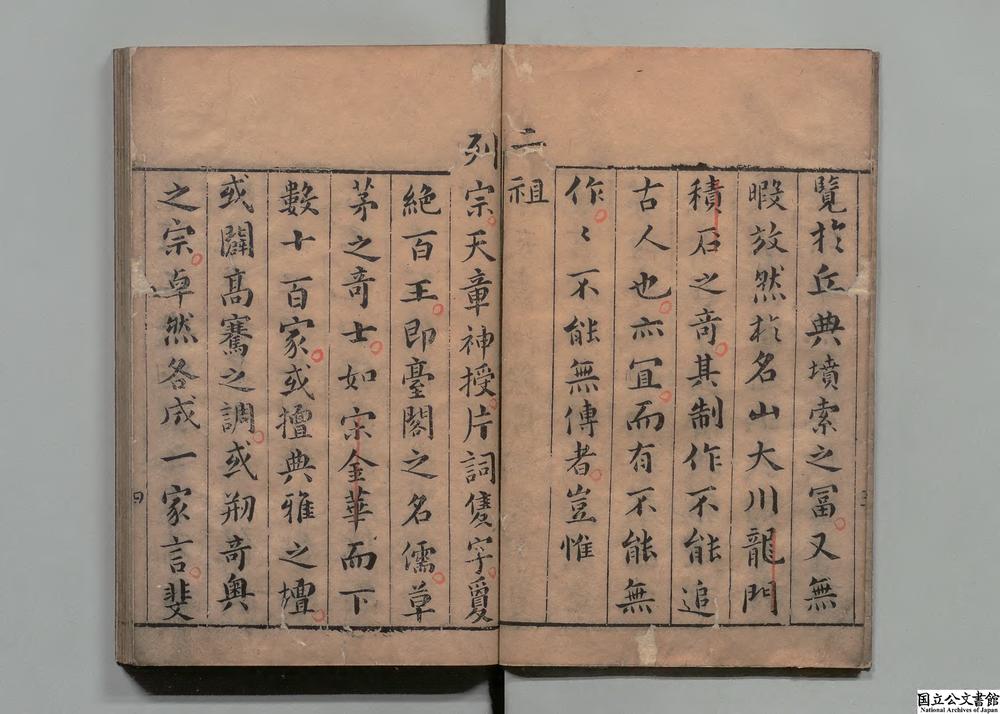 覽於丘典墳索之冨又無
暇放然於名山大川龍門
積石之竒其制作不能追
古人也亦宜而有不能無
作〻不能無傳者豈惟
二祖
列宗天章神授片詞隻字敻
絶百王即臺閣之名儒草
茅之竒士如宗金華而下
數十百家或擅典雅之壇
或闢髙騫之調或刱竒奥
之宗卓然各成一家言斐
三
四
国立公文書館
National Archives of Japan